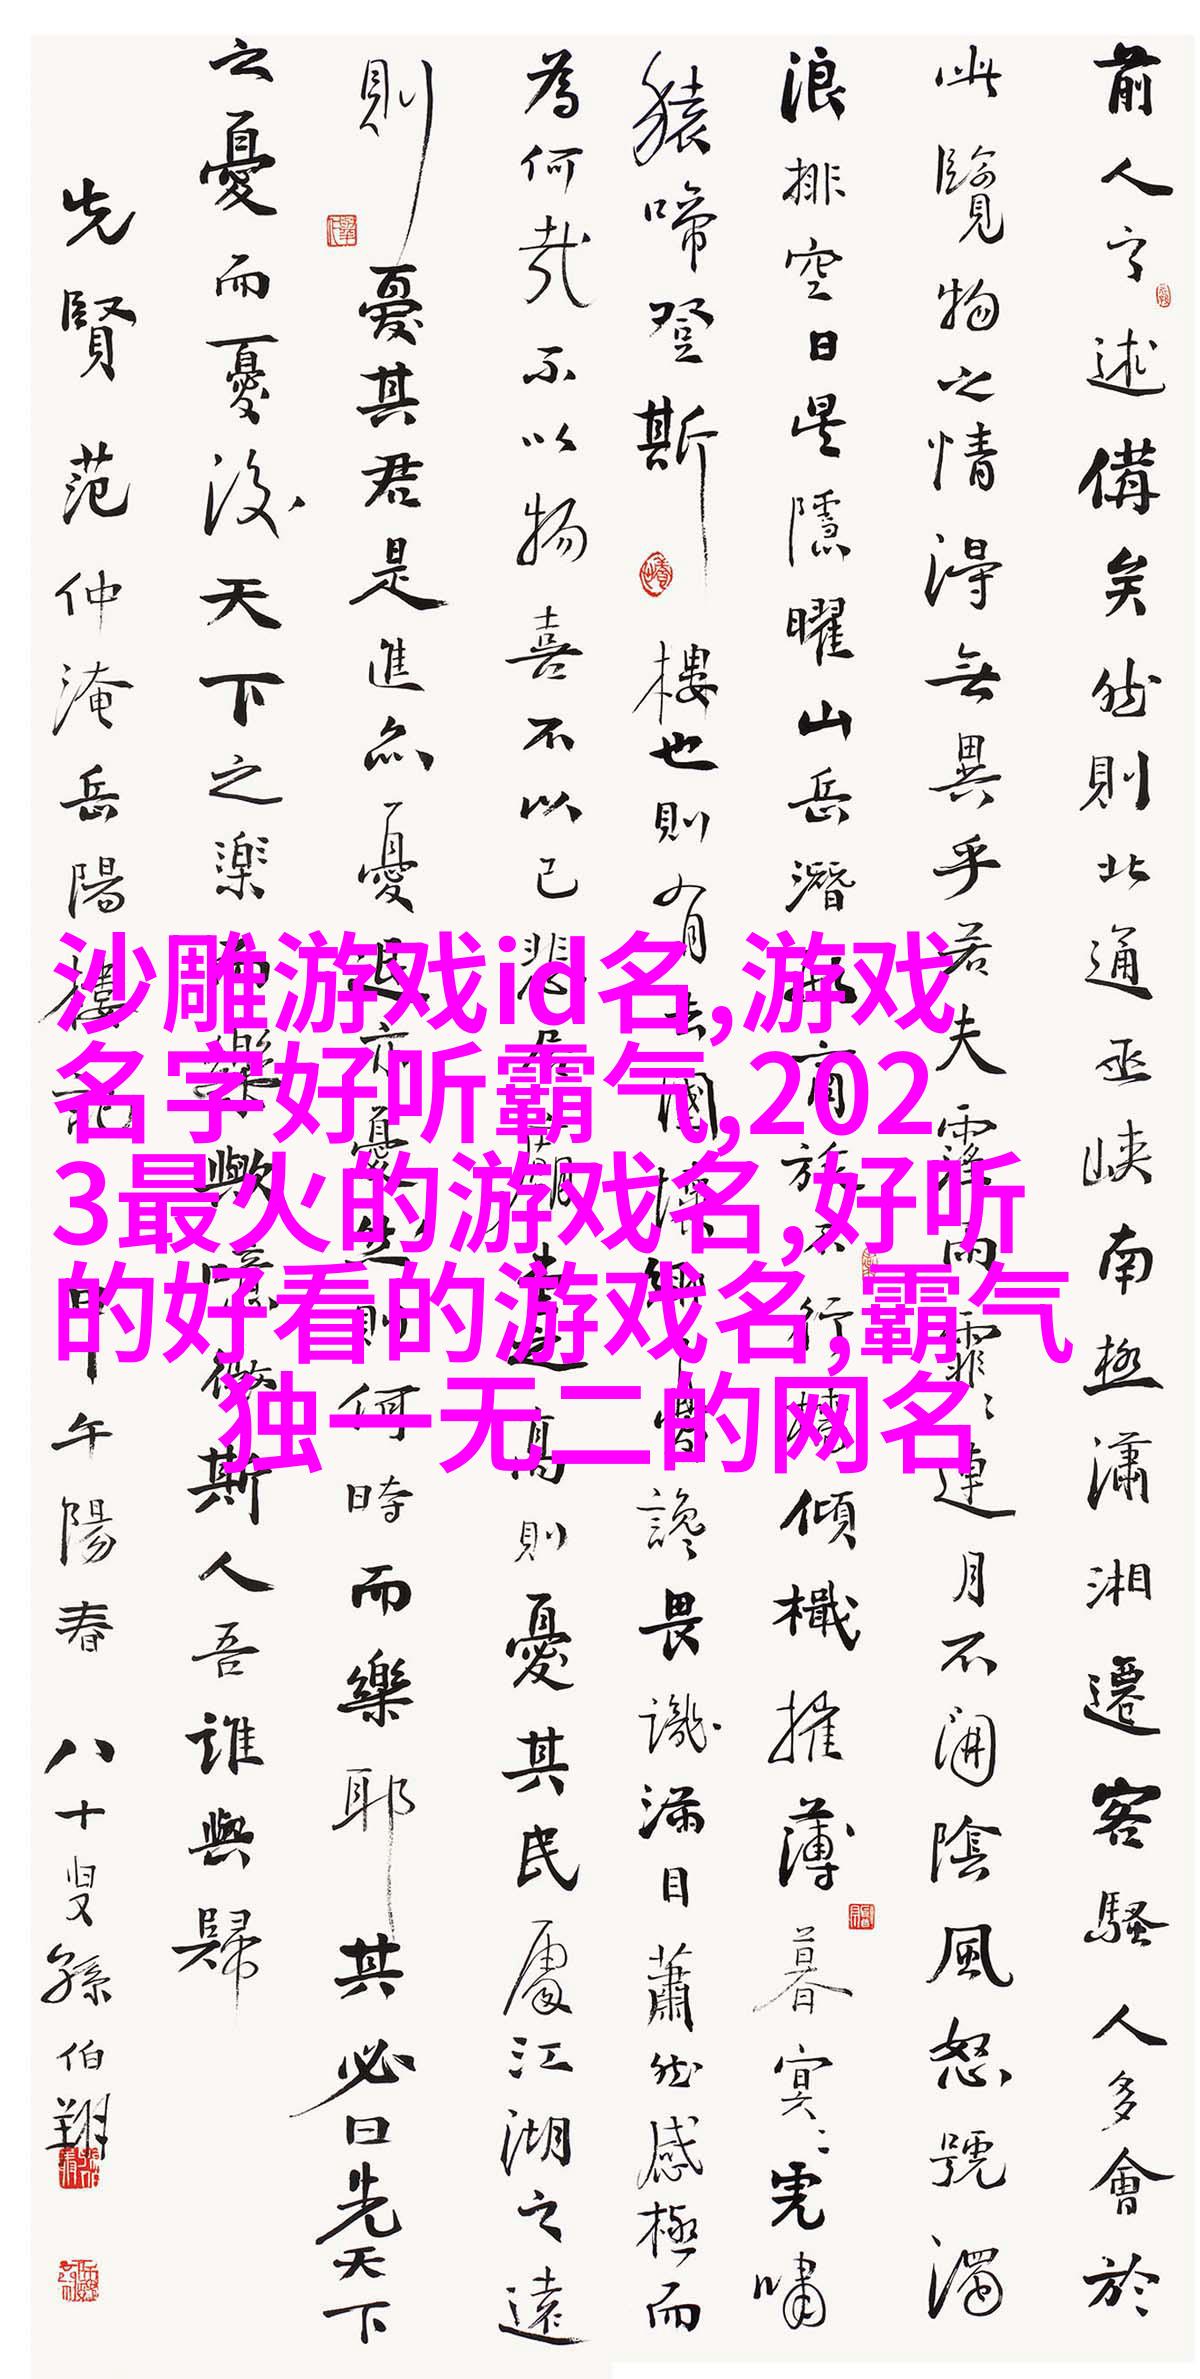 前人之述備矣然則北通巫峽南極瀟湘遷客騷人多會於
此覽物之情得無異乎若夫霪雨霏〻連月不開陰風怒號濁
浪排空日星隱曜山岳潛形商旅不行檣傾檝摧薄暮冥〻虎嘯
猿啼登斯樓也則有去國懷鄉憂讒畏譏滿目蕭然感極而
為何哉不以物喜不以己悲居廟堂之高則憂其民處江湖之遠
則憂其君是進亦憂退亦憂然則何時而樂耶其必曰先天下
之憂而憂後天下之楽而樂歟噫微斯人吾誰與歸
先賢范仲淹岳陽樓記甲午陽春 八十叟孫伯翔
沙雕游戏id名,游戏
名字好听霸气,202
3最火的游戏名,好听
的好看的游戏名,霸气
独一无二的网名